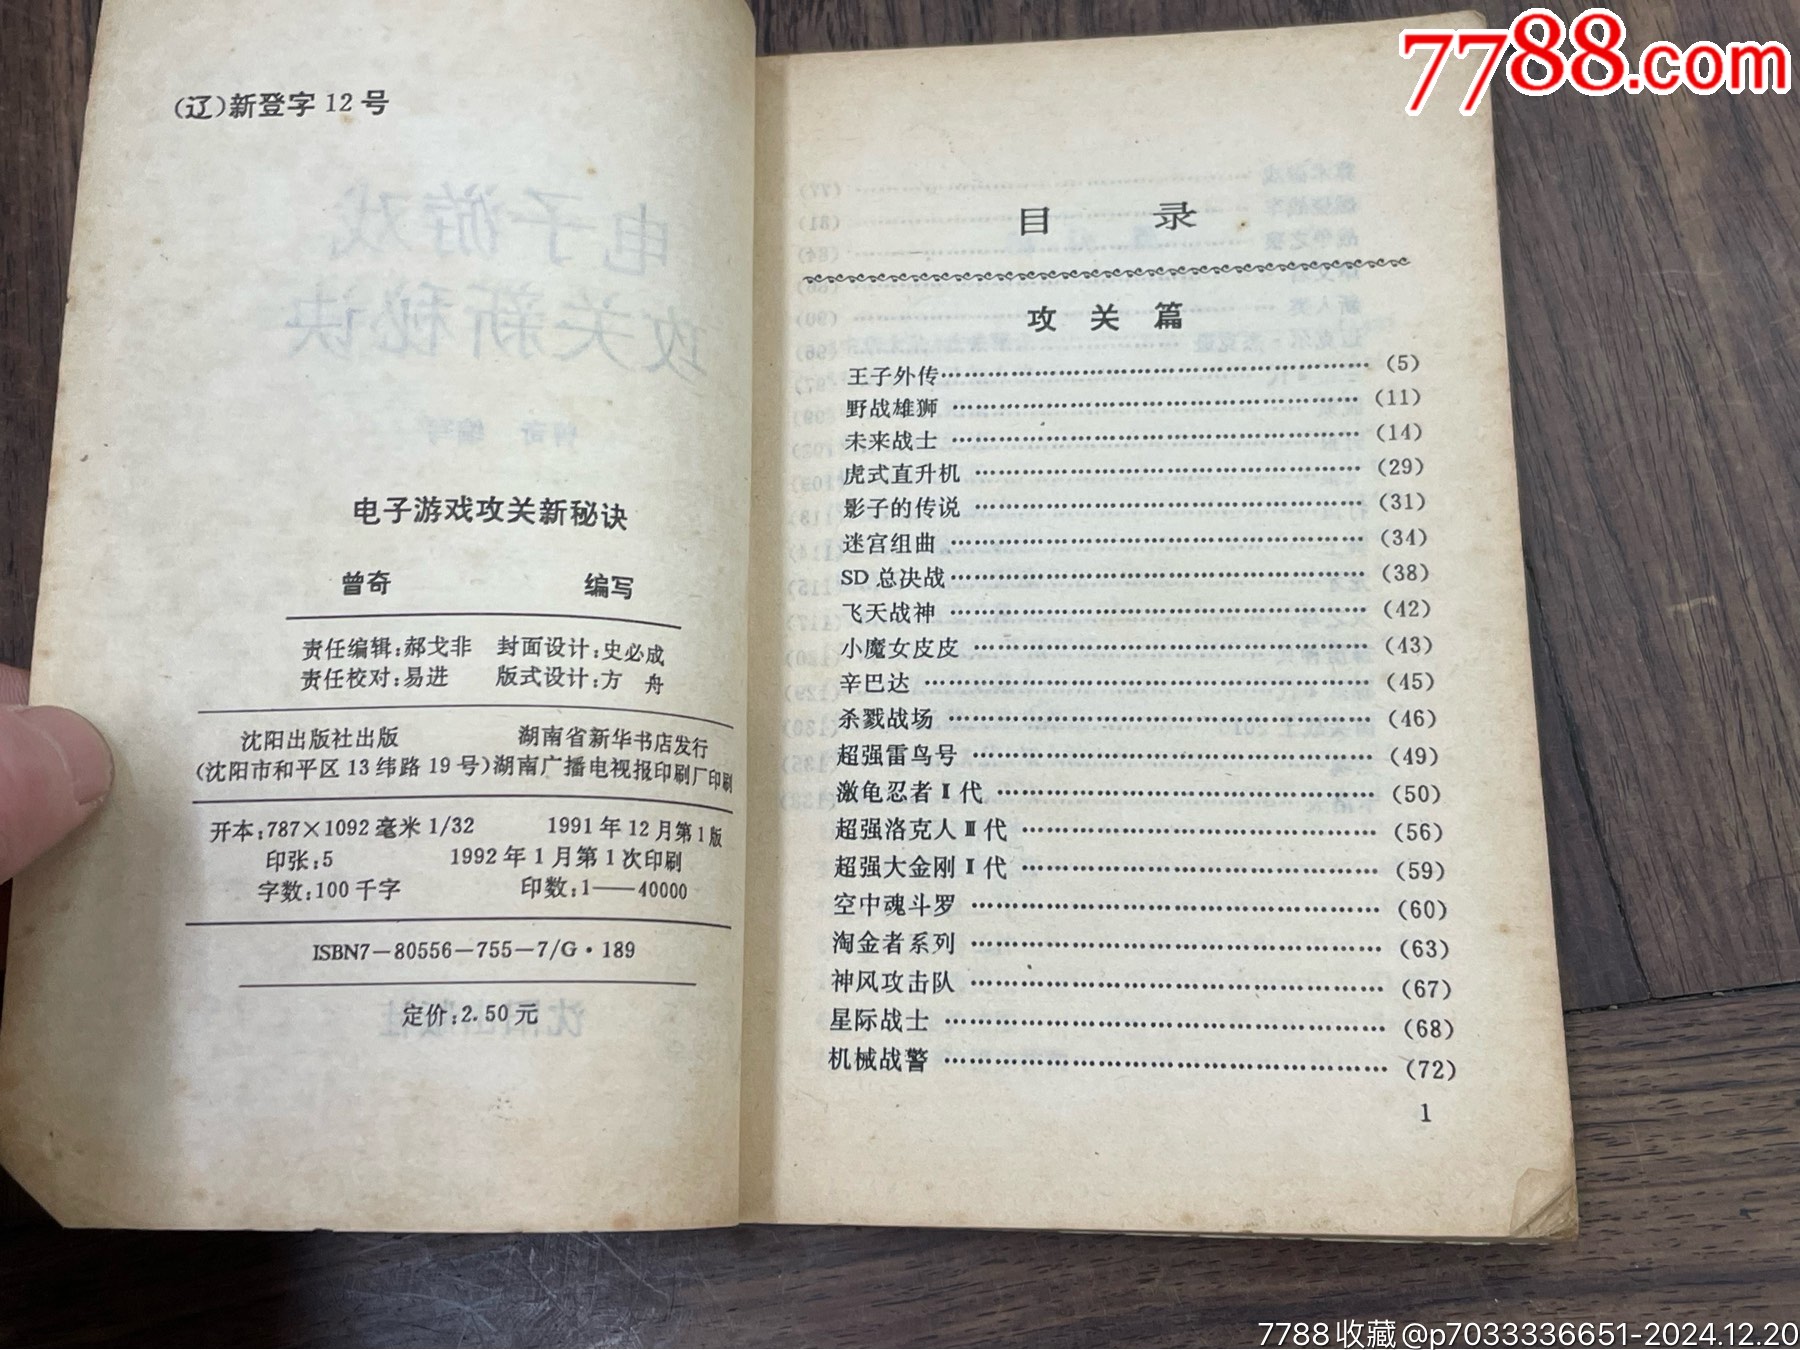 7788.com
(辽)新登字 12 号
电子游戏攻关新秘诀
曾奇 编写
责任编辑:郝戈非 封面设计:史必成
责任校对:易进 版式设计:方 舟
沈阳出版社出版 湖南省新华书店发行
(沈阳市和平区 13 纬路 19 号)湖南广播电视报印刷厂印刷
开本:787×1092 毫米 1/32 1991 年 12 月第 1 版
印张:5 1992 年 1 月第 1 次印刷
字数:100 千字 印数:1——40000
ISBN7-80556-755-7/G·189
定价:2.50 元
目 录
攻 关 篇
王子外传……………………………………………(5)
野战雄狮……………………………………………(11)
未来战士……………………………………………(14)
虎式直升机…………………………………………(29)
影子的传说…………………………………………(31)
迷宫组曲……………………………………………(34)
SD 总决战……………………………………………(38)
飞天战神……………………………………………(42)
小魔女皮皮…………………………………………(43)
辛巴达………………………………………………(45)
杀戮战场……………………………………………(46)
超强雷鸟号…………………………………………(49)
激龟忍者 Ⅱ 代………………………………………(50)
超强洛克人 Ⅲ 代……………………………………(56)
超强大金刚 Ⅱ 代……………………………………(59)
空中魂斗罗…………………………………………(60)
淘金者系列…………………………………………(63)
神风攻击队…………………………………………(67)
星际战士……………………………………………(68)
机械战警……………………………………………(72)
1
7788收藏@p7033336651-2024.12.20